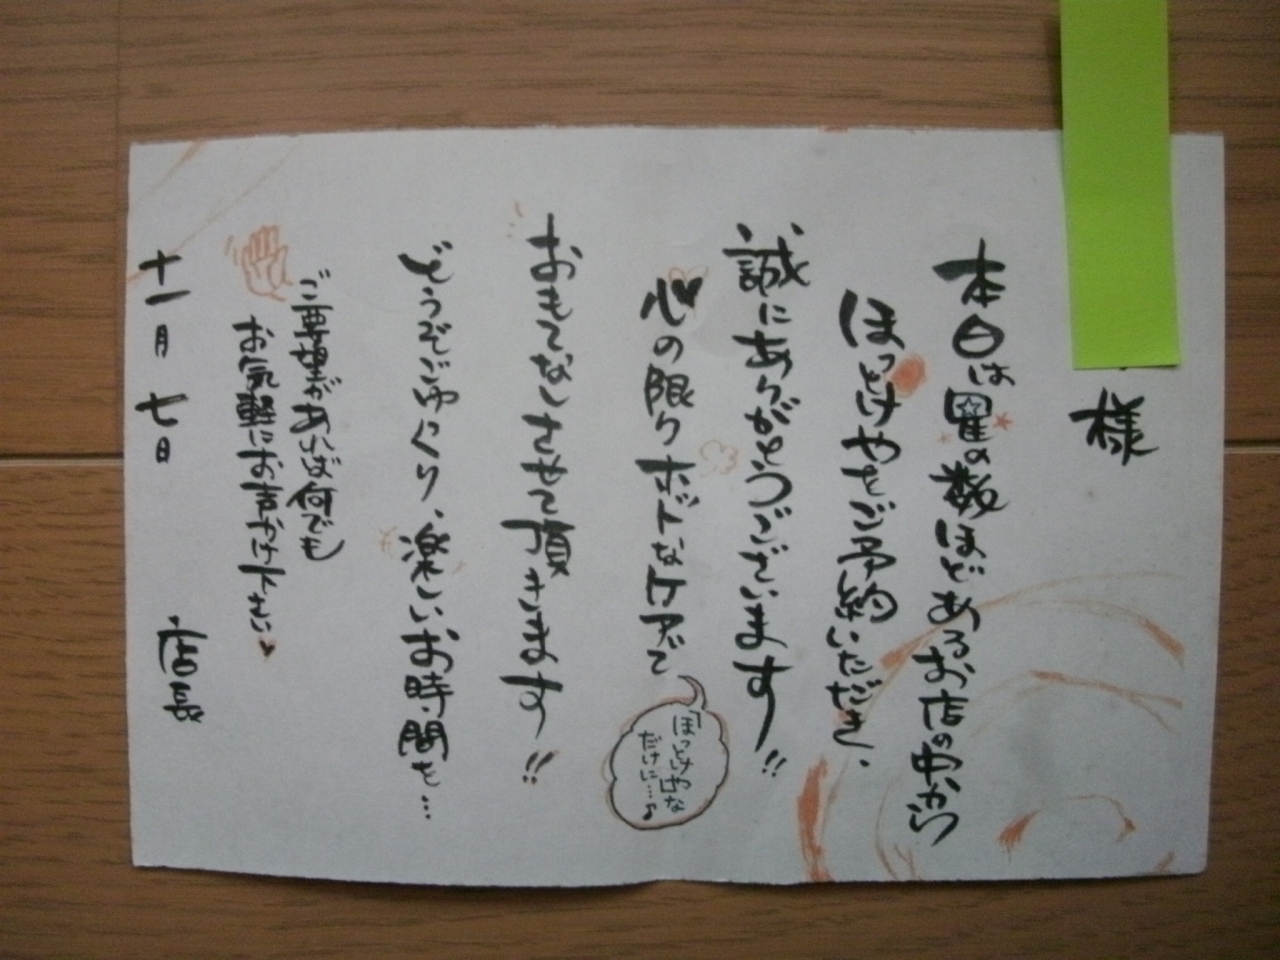 様
本日は星の数ほどあるお店の中から
ほっとけやをご予約いただき、
誠にありがとうございます!!
心の限りホットなケアで
「ほっとけや」な
だけに…♪
おもてなしさせて頂きます!!
どうぞごゆっくり、楽しいお時間を…
ご要望があれば何でも
お気軽にお声かけ下さい♥
十一月 七日 店長